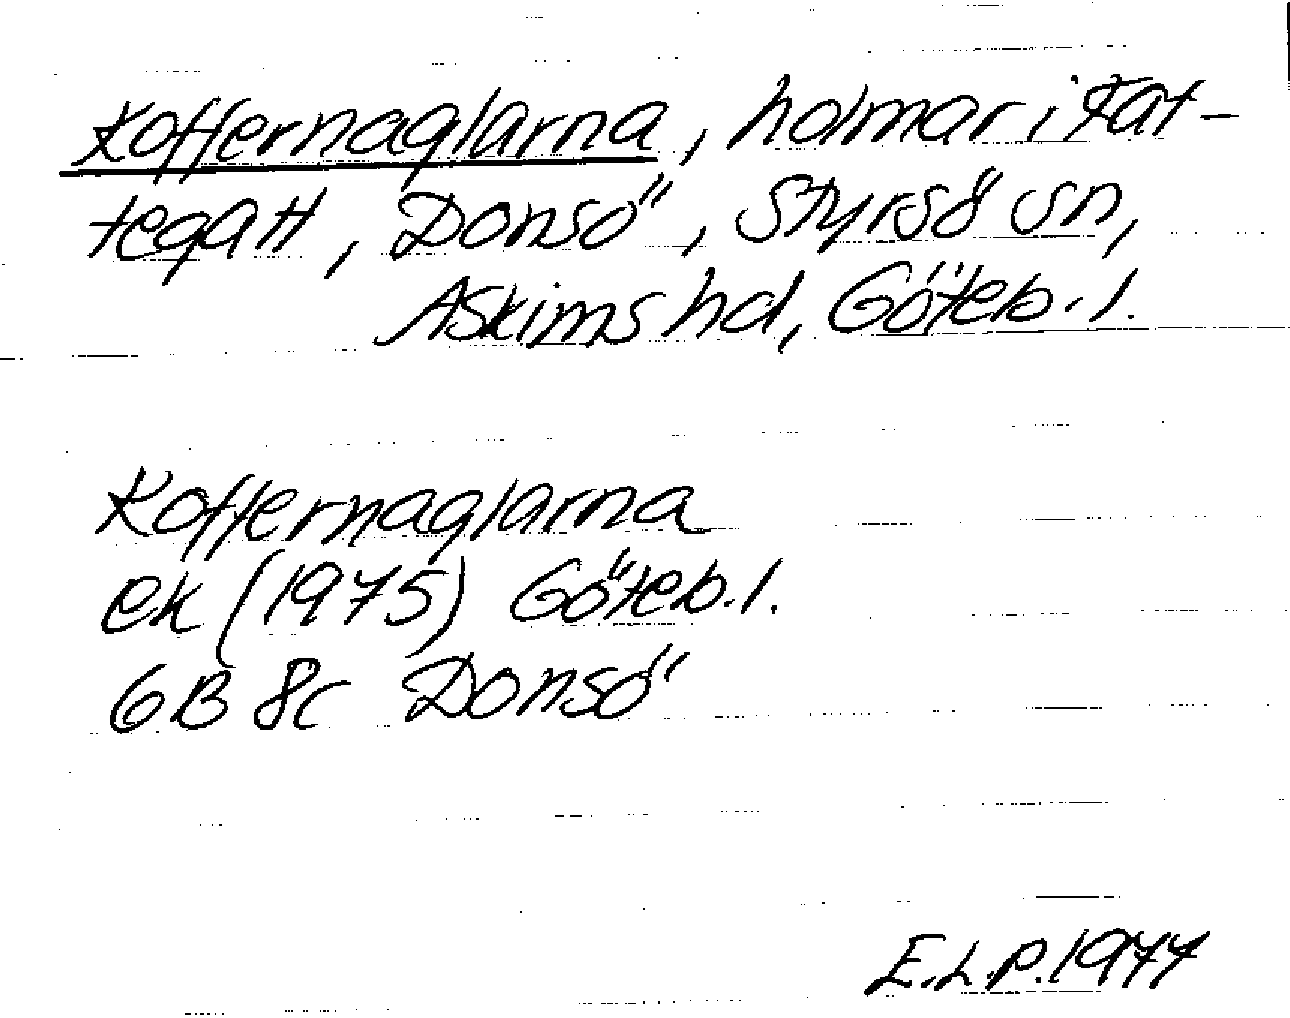 Koffernaglarna, holmar i Kat-
tegatt, Donsö, Styrsö sn,
Askims hd, Göteb. l.
Koffernaglarna
ek (1975) Göteb. l.
6B 8c Donsö
E.L.P. 1977